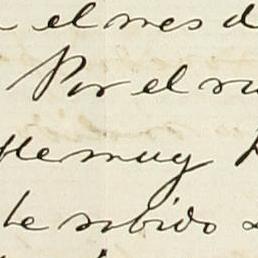 el mes d
Por el
muy
te subido